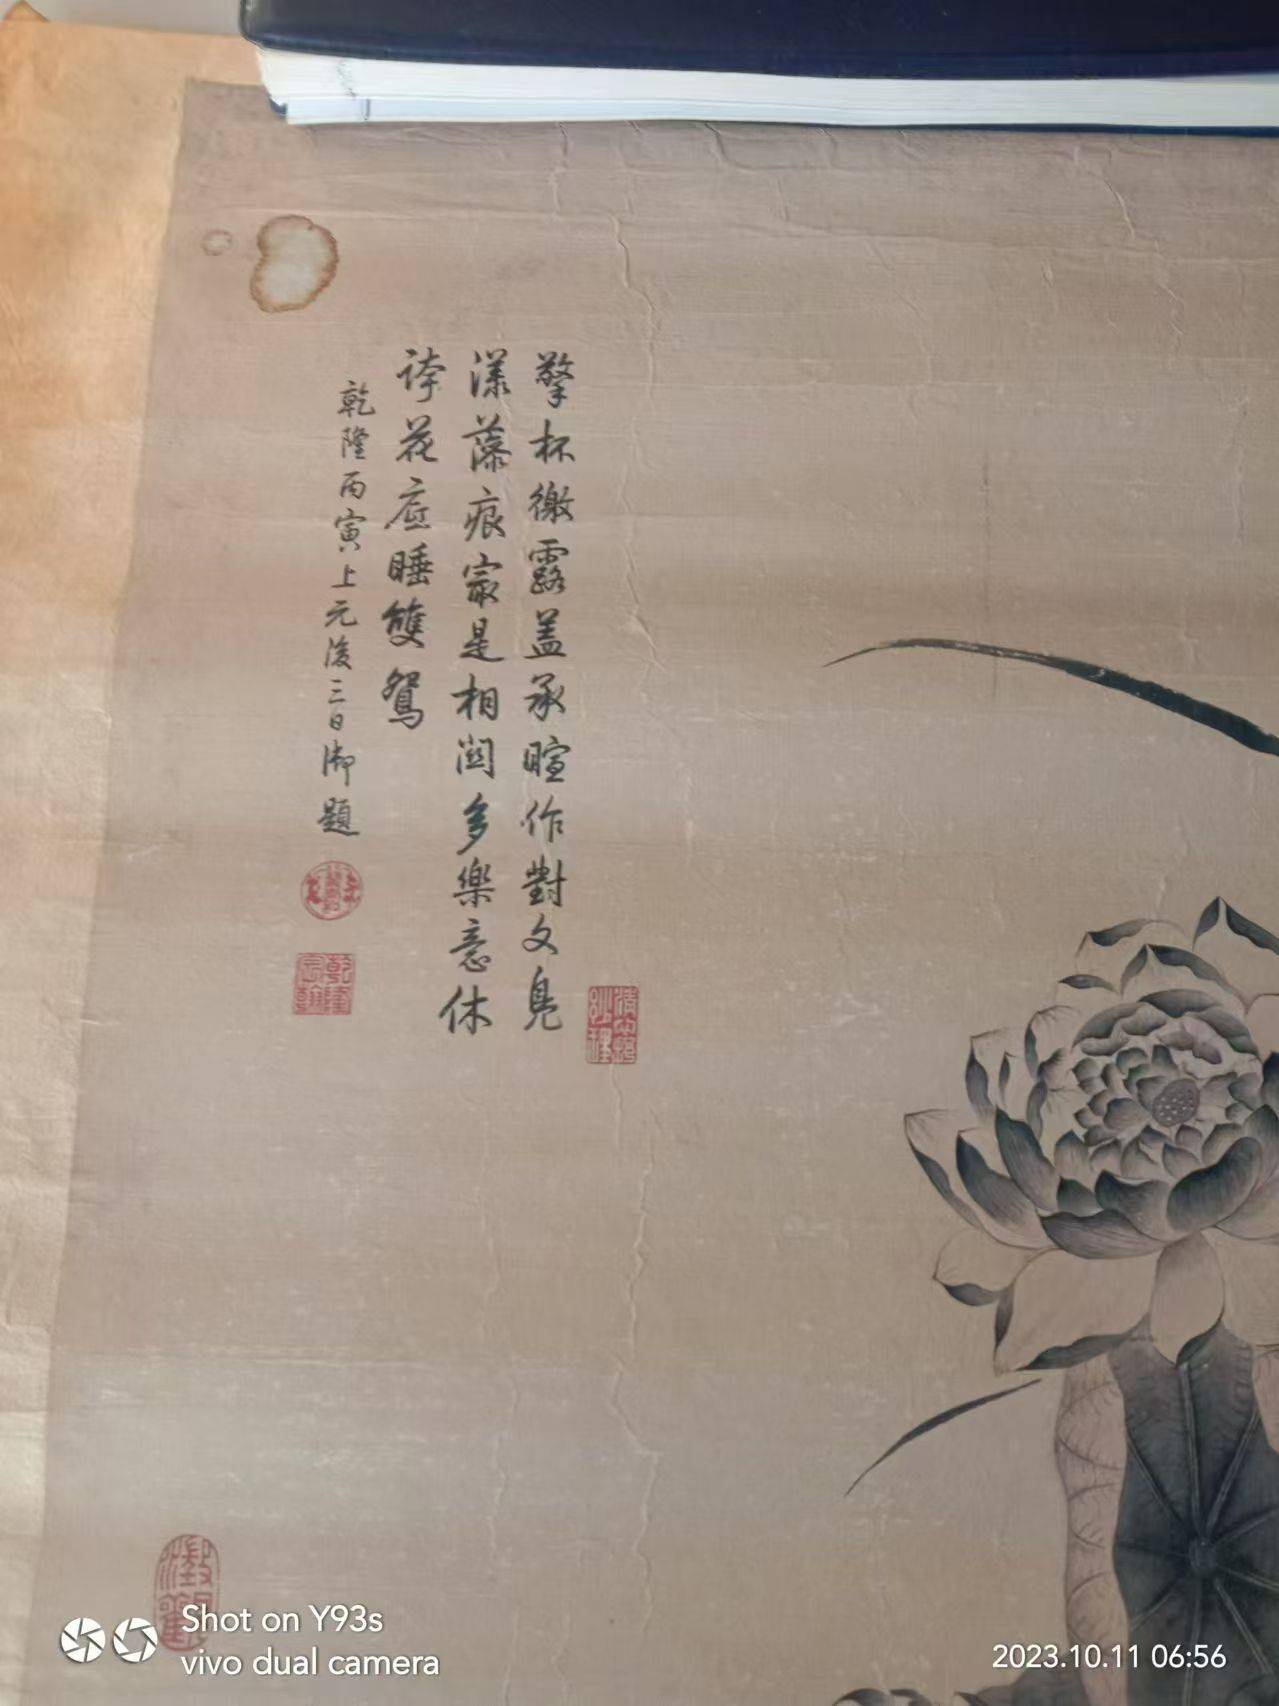 擎杯徹露盖承暄作對文鳧
漾藻痕寂是相関多樂意休
誇花底睡雙鴛
乾隆丙寅上元後三日御題
乾隆宸翰
Shot on Y93s
vivo dual camera
2023.10.11 06:56